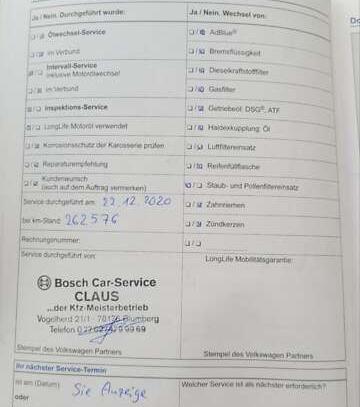 Ja / Nein. Durchgeführt wurde:
Ölwechsel-Service
im Verbund
Intervall-Service
inklusive Motorölwechsel
im Verbund
Inspektions-Service
LongLife Motoröl verwendet
Korrosionsschutz der Karosserie prüfen
Reparaturempfehlung
Kundenwunsch
(auch auf dem Auftrag vermerken)
Service durchgeführt am: 22.12.2020
bei km-Stand: 262576
Rechnungsnummer:
Service durchgeführt von:
Bosch Car-Service
CLAUS
...der Kfz-Meisterbetrieb
Vogelherd 21/1 · Blumberg
Telefon
Stempel des Volkswagen Partners
Ihr nächster Service-Termin
ist am (Datum) Sie Anzeige
oder
Ja / Nein. Wechsel von:
AdBlue®
Bremsflüssigkeit
Dieselkraftstofffilter
Gasfilter
Getriebeöl: DSG®, ATF
Haldexkupplung: Öl
Luftfiltereinsatz
Reifenfüllflasche
Staub- und Pollenfiltereinsatz
Zahnriemen
Zündkerzen
LongLife Mobilitätsgarantie:
Stempel des Volkswagen Partners
Welcher Service ist als nächster erforderlich?
Do